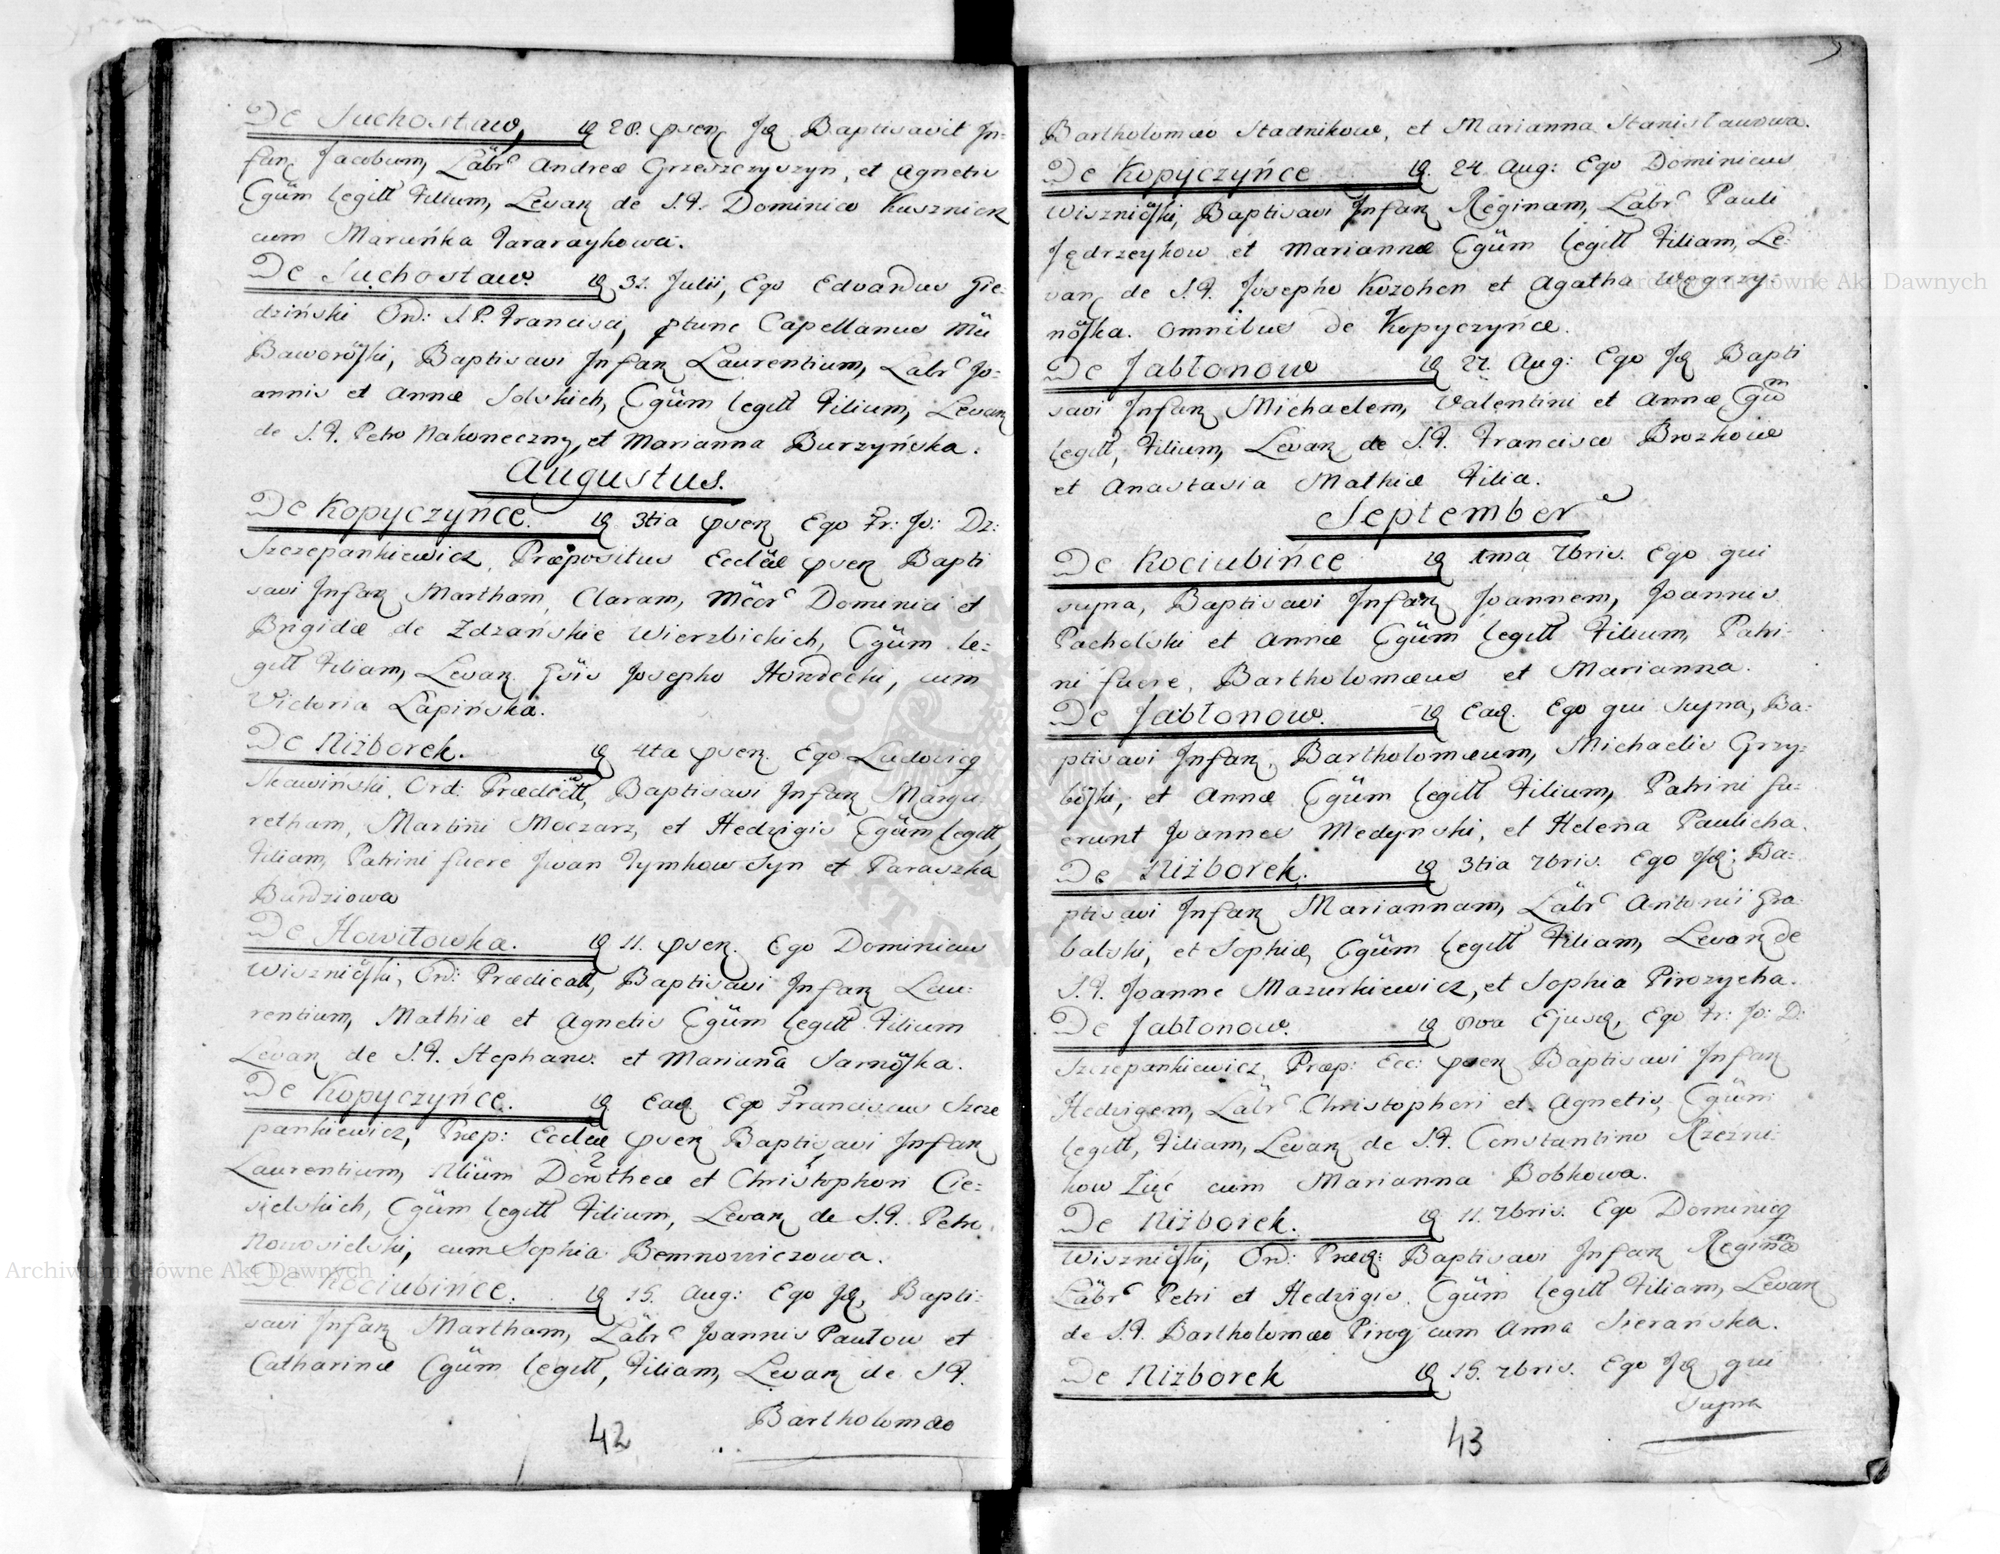 De Suchostaw, 28. Baptisavit In=
fan Jacobum, Labr Andreæ Grzeszczyszyn, et Agnetis
Cgüm legitt Filium, Levan de S.F. Dominico Kusznierz
cum Maruńka Tararaykowa.
De Suchostaw. 31. Julii, Ego Edvardus Gie=
dziński Ord: S.P. Francisci, ptunc Capellanus
Baworoski, Baptisavi Infan Laurentium, Labr Jo=
annis et Annæ Solskich, Cgüm legitt Filium, Levan
de S.F. Petro Nakoneczny, et Marianna Burzyńska.
Augustus.
De Kopyczyńce. 3tia Ego Fr: Jo: Dz:
Szczepankiewicz, Præpositus Ecclæ Bapti
savi Infan Martham, Claram, Dominici et
Brigidæ de Zdzańskie Wierzbickich, Cgüm le=
gitt Filiam, Levan Josepho Hordecki, cum
Victoria Łapińska.
De Niżborek. 4ta Ego Ludovicq
Skawiński, Ord: Prædictt, Baptisavi Infan Marga=
retham, Martini Moczarz, et Hedvigis Cgüm legitt,
Filiam, Patrini fuere Iwan Tymkow Syn et Paraszka
Bardziowa
De Howiłowka. 11. Ego Dominicus
Wiszniöski, Ord: Prædicat, Baptisavi Infan Lau=
rentium, Mathiæ et Agnetis Cgüm legitt Filium
Levan de S.F. Stephano. et Marianna Sarnöska.
De Kopyczyńce. Ead. Ego Franciscus Szcze
pankiewicz, Præp: Ecclæ Baptisavi Infan
Laurentium, Dorotheæ et Christophori Cie=
sielskich, Cgüm legitt Filium, Levan de S.F. Petro
Nowosielski, cum Sophia Bemnowiczowa.
De Kociubińce. 15. Aug: Ego Jd, Bapti=
savi Infan Martham, Labr Joannis Pautow et
Catharinæ Cgüm legitt, Filiam, Levan de S.F.
Bartholomæo
42
Bartholomæo Stadnikow, et Marianna Stanisławowa.
De Kopyczyńce 24. Aug: Ego Dominicus
Wiszniöski, Baptisavi Infan Reginam, Labr Pauli
Jędrzeykow et Mariannæ Cgüm legitt Filiam, Le=
van de S.F. Josepho Kozohen et Agatha Węgrzy=
nöska. Omnibus de Kopyczyńce.
De Jabłonow 27. Aug: Ego Jd Bapti
savi Infan Michaelem, Valentini et Annæ Cgüm
legitt, Filium, Levan de S.F. Francisco Brozkowe
et Anastasia Mathiæ Filia.
September
De Kociubińce 1ma 7bris. Ego qui
supra, Baptisavi Infan Joannem, Joannis
Pacholski et Annæ Cgüm legitt Filium, Patri=
ni fuere, Bartholomæus et Marianna.
De Jabłonow. Ead. Ego qui supra, Ba=
ptisavi Infan, Bartholomæum, Michaelis Grzy=
böski, et Annæ Cgüm legitt Filium, Patrini fu=
erunt Joannes Medynski, et Helena Paulicha.
De Niżborek. 3tia 7bris. Ego Jd: Ba=
ptisavi Infan Mariannam, Labr Antonii Gra=
balski, et Sophiæ, Cgüm legitt Filiam, Levan de
S.F. Joanne Mazurkiewicz, et Sophia Pirozycha.
De Jabłonow. 8va Ejusd, Ego Fr: Jo: D:
Szczepankiewicz, Præp: Ecc: Baptisavi Infan
Hedvigem, Labr Christophori et Agnetis, Cgüm
legitt, Filiam, Levan de S.F. Constantino Rzezni=
kow Zięć cum Marianna Bobkowa.
De Niżborek. 11. 7bris. Ego Dominicq
Wiszniöski, Ord: Præd: Baptisavi Infan Reginã
Labr Petri et Hedvigis, Cgüm legitt Filiam, Levan
de S.F. Bartholomæo Pirog cum Anna Sierańska.
De Niżborek 15. 7bris. Ego Jd qui
supra
43
Archiwum Główne Akt Dawnych
Archiwum Główne Akt Dawnych